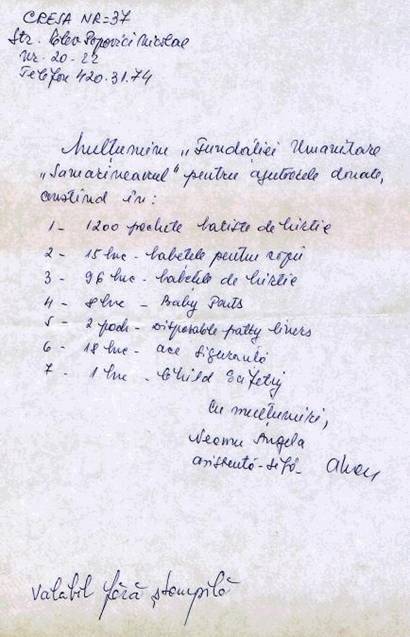 CREȘA NR=37
Str. Popovici Nicolae
Nr. 20-22
Telefon 420.31.74
Mulțumim „Fundației Umanitare
„Samarineanul" pentru ajutoarele donate,
constînd în:
1- 1200 pachete batiste de hîrtie
2 - 15 buc - babețele pentru copii
3 - 96 buc - babețele de hîrtie
4 - 8 buc - Baby Pants
5 - 2 pach - Disposable patty liners
6 - 18 buc - ace siguranță
7 - 1 buc - Child Safetiy
Cu mulțumiri,
Neamu Angela
asistentă-șefă-
Valabil fără ștampilă